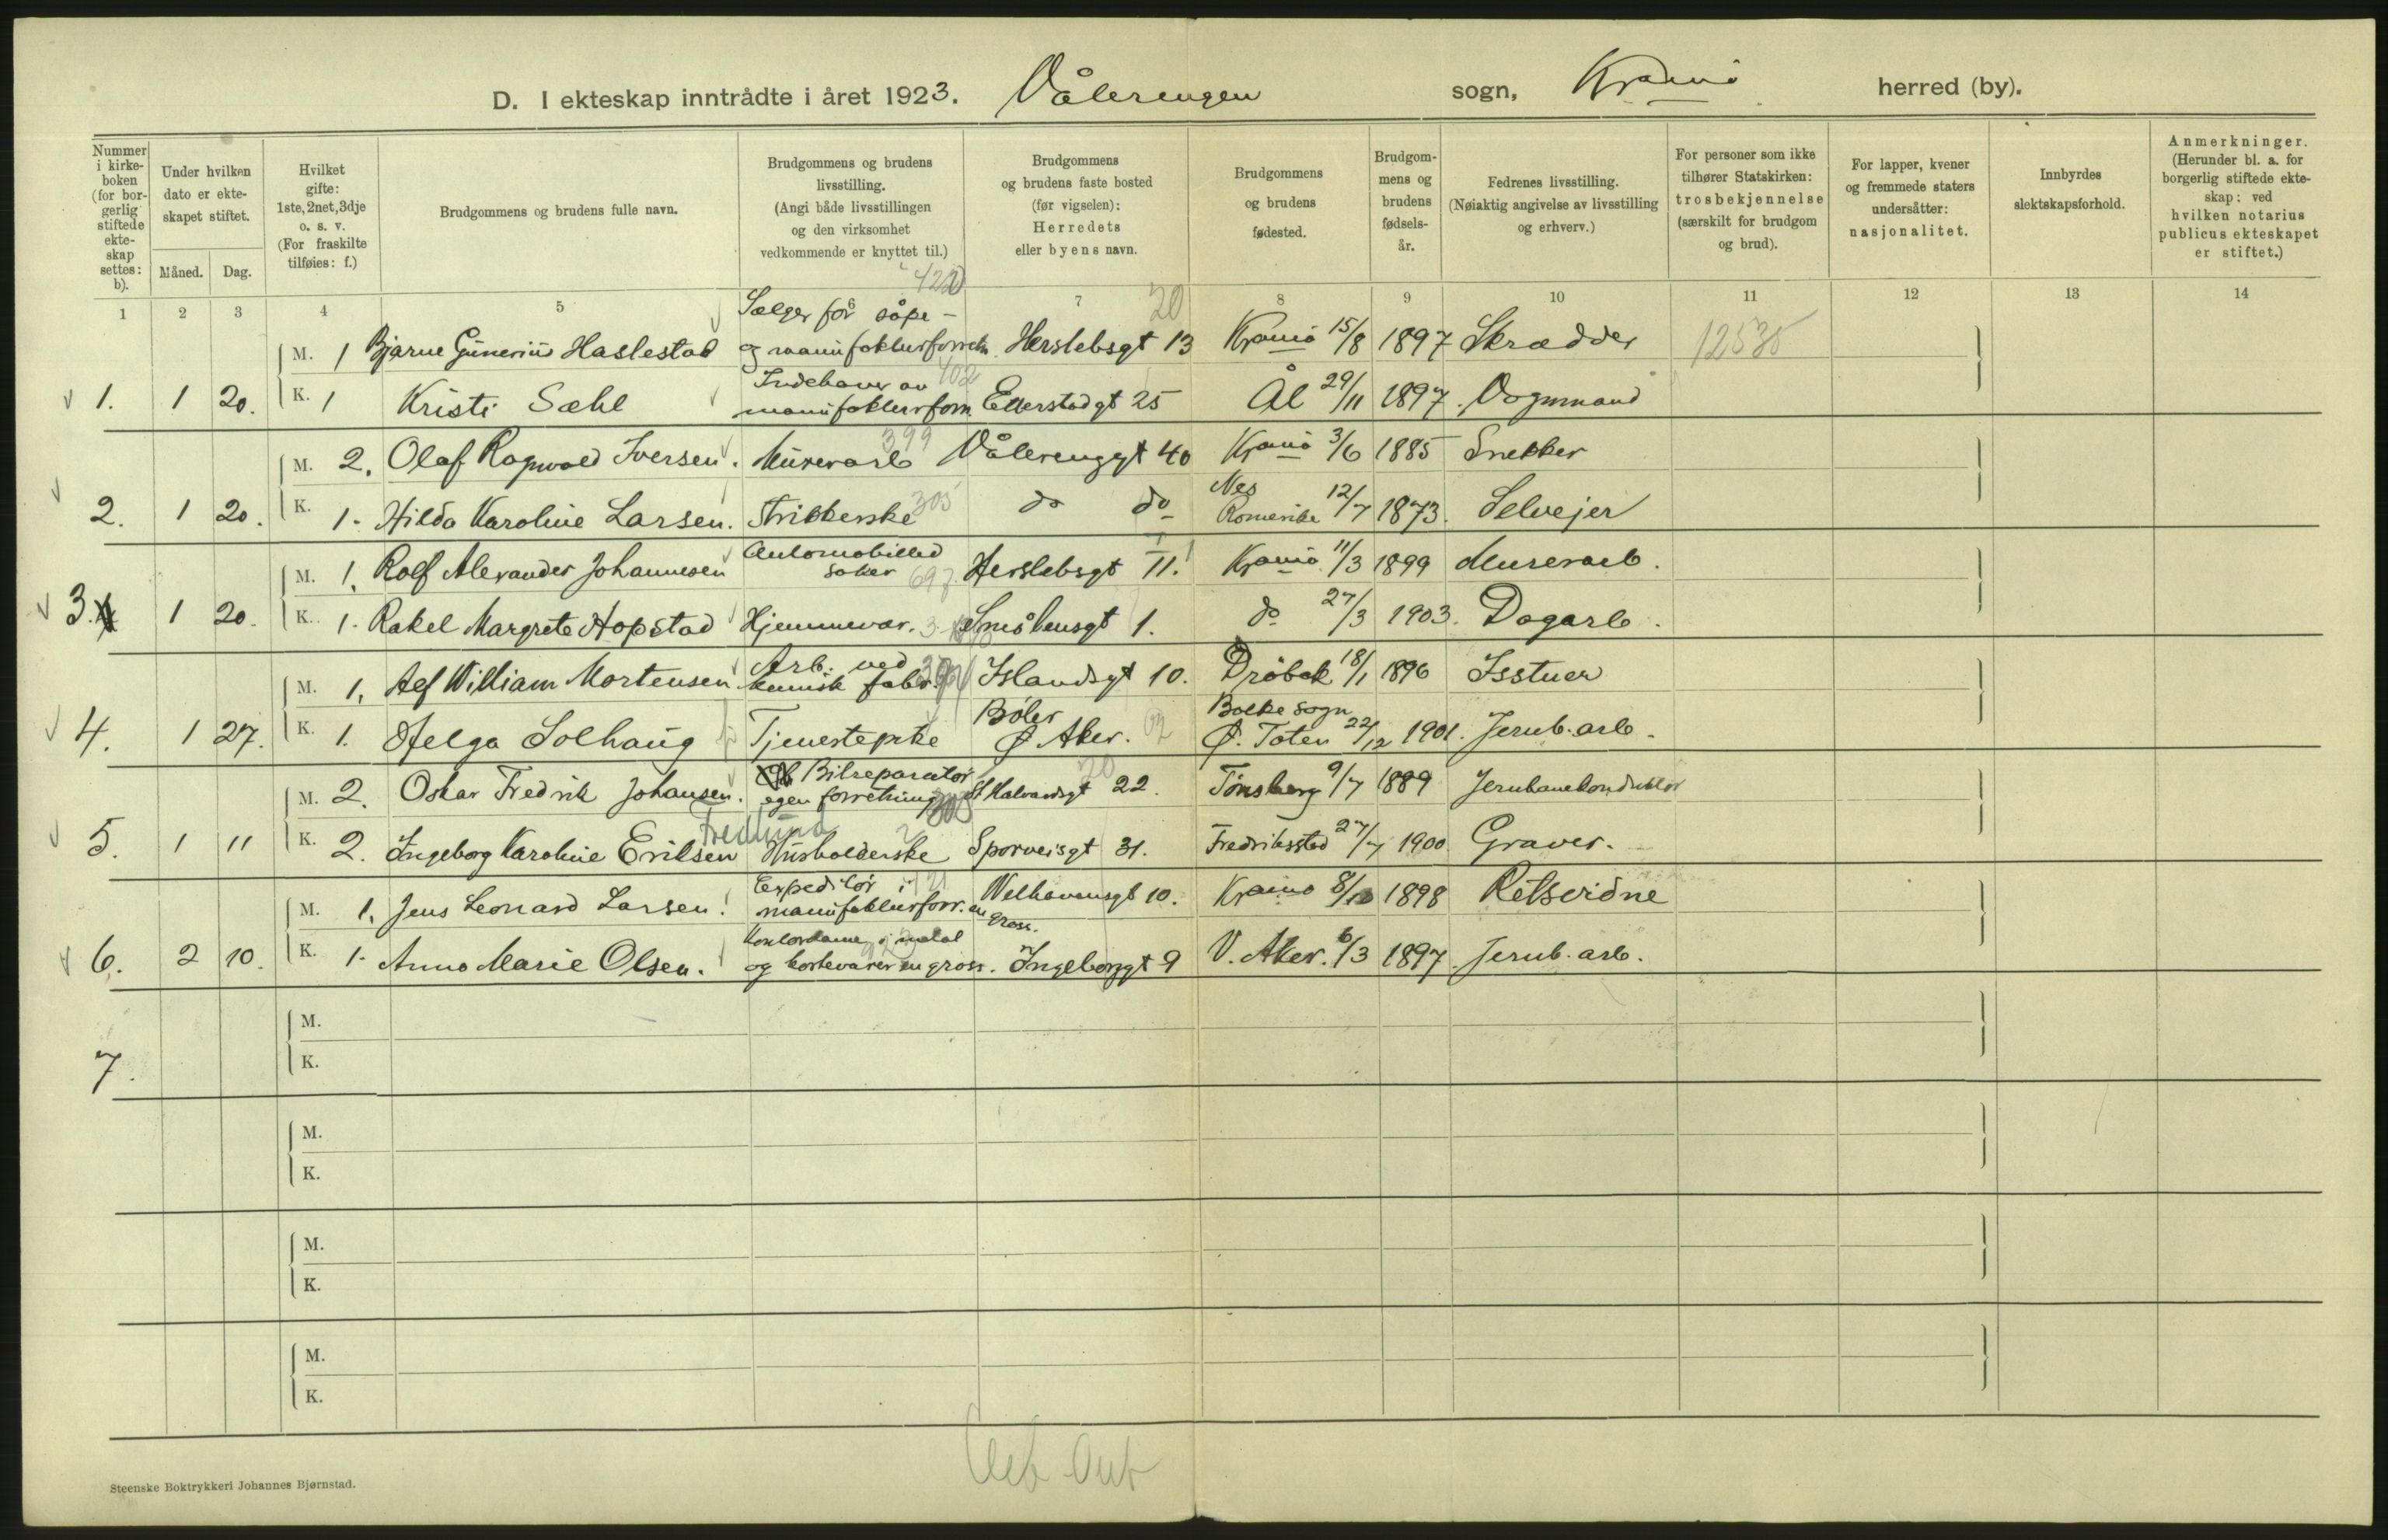 D. I ekteskap inntrådte i året 1923. Vålerengen sogn, Krania herred (by).
Nummer i kirkeboken (for borgerlig stiftede ekteskap settes: b).
Under hvilken dato er ekteskapet stiftet.
Måned. Dag.
Hvilket gifte: 1ste, 2net, 3dje o. s. v. (For fraskilte tilføies: f.)
Brudgommens og brudens fulle navn.
Brudgommens og brudens livsstilling. (Angi både livsstillingen og den virksomhet vedkommende er knyttet til.)
Brudgommens og brudens faste bosted (før vigselen): Herredets eller byens navn.
Brudgommens og brudens fødested.
Brudgommens og brudens fødselsår.
Fedrenes livsstilling. (Nøiaktig angivelse av livsstilling og erhverv.)
For personer som ikke tilhører Statskirken: trosbekjennelse (særskilt for brudgom og brud).
For lapper, kvener og fremmede staters undersåtter: nasjonalitet.
Innbyrdes slektskapsforhold.
Anmerkninger. (Herunder bl. a. for borgerlig stiftede ekteskap: ved hvilken notarius publicus ekteskapet er stiftet.)
1 2 3 4 5 6 7 8 9 10 11 12 13 14
M. 1 Bjarne Gunerius Haslestad Sælger for såpe- og manufakturforretn. Herslebsgt 13 Krania 15/8 1897 Skrædder
1. 1 20. K. 1 Kristi Sæhl Indehaver av manufakturforr. Etterstadgt 25 Ål 29/11 1897. Vognmand
M. 2. Olaf Ragnvald Iversen. Murerarb 399 Vålerenggt 40 Krania 3/6 1885 Snekker
2. 1 20. K. 1. Hilda Karoline Larsen. Strikkerske 305 do do Nes Romerike 12/7 1873. Selvejer
M. 1. Rolf Alexander Johannesen Automobillad saker 697 Herslebsgt 11. Krania 11/3 1899 Murerarb.
3. 1 20. K. 1. Rakel Margrete Hopstad Hjemmevær. Smålensgt 1. do 27/3 1903. Dagarb.
M. 1. Alf William Mortensen Arb. ved kemisk fabr. Islandsgt 10. Drøbak 18/1 1896 Isstuer
4. 1 27. K. 1. Helga Solhaug Tjenestepike Bøler Ø. Aker. Balke sogn Ø. Toten 22/12 1901. Jernb. arb.
M. 2. Oskar Fredrik Johansen. Bilreparatør egen forretning St Halvardsgt 22. Tønsberg 9/7 1889 Jernbanekonduktør
5. 1 11 K. 2. Ingeborg Karoline Eriksen Fredlund Husholderske Sporveisgt 31. Fredriksstad 27/7 1900 Graver.
M. 1. Jens Leonard Larsen. Expeditør i manufakturforr. en gros. Welhavensgt 10. Krania 8/10 1898 Retsvidne
6. 2 10. K. 1. Anna Marie Olsen. Kontordame i metal og kortevarer en gross. Ingeborggt 9 V. Aker. 6/3 1897. Jernb. arb.
M.
7. K.
M.
K.
M.
K.
M.
K.
Steenske Boktrykkeri Johannes Bjørnstad.